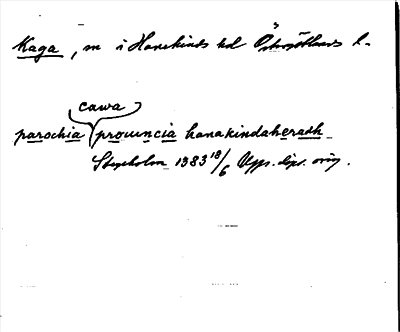 Kaga, sn i Hanekinds hd Östergötlands l.
cawa
parochia provincia hanakindaheradh
Stegeholm 1383 18/6 Upps. dipl. orig.